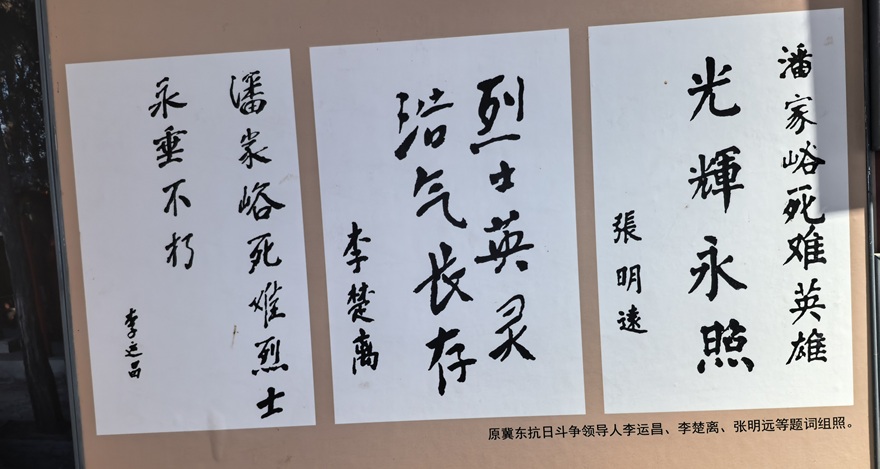 潘家峪死难英雄
光輝永照
張明遠
烈士英灵
浩气长存
李楚离
潘家峪死难烈士
永垂不朽
李运昌
原冀东抗日斗争领导人李运昌、李楚离、张明远等题词组照。